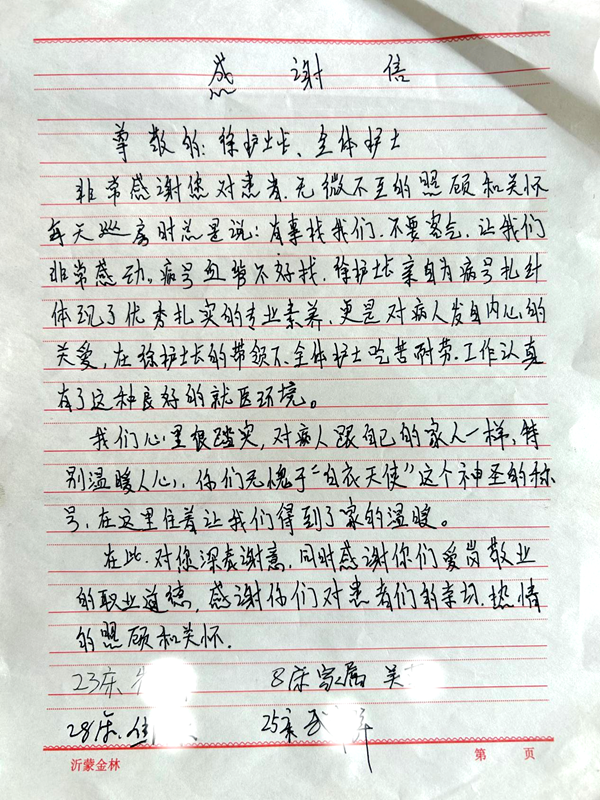 感谢信
尊敬的:徐护士长、全体护士
非常感谢您对患者无微不至的照顾和关怀
每天巡房时总是说:有事找我们.不要客气.让我们
非常感动。病号血管不好找.徐护士长亲自为病号扎针
体现了优秀扎实的专业素养.更是对病人发自内心的
关爱,在徐护士长的带领下.全体护士吃苦耐劳.工作认真
有了这种良好的就医环境。
我们心里很踏实,对病人跟自己的家人一样,特
别温暖人心,你们无愧于“白衣天使”这个神圣的称
号,在这里住着让我们得到了家的温暖。
在此.对您深表谢意,同时感谢你们爱岗敬业
的职业道德,感谢你们对患者们的亲切.热情
的照顾和关怀.
23床 8床家属 关
28床. 25床
沂蒙金林 第 页